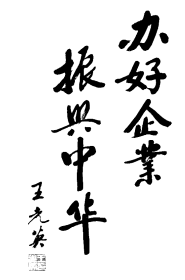 办好企業
振興中华
王光英